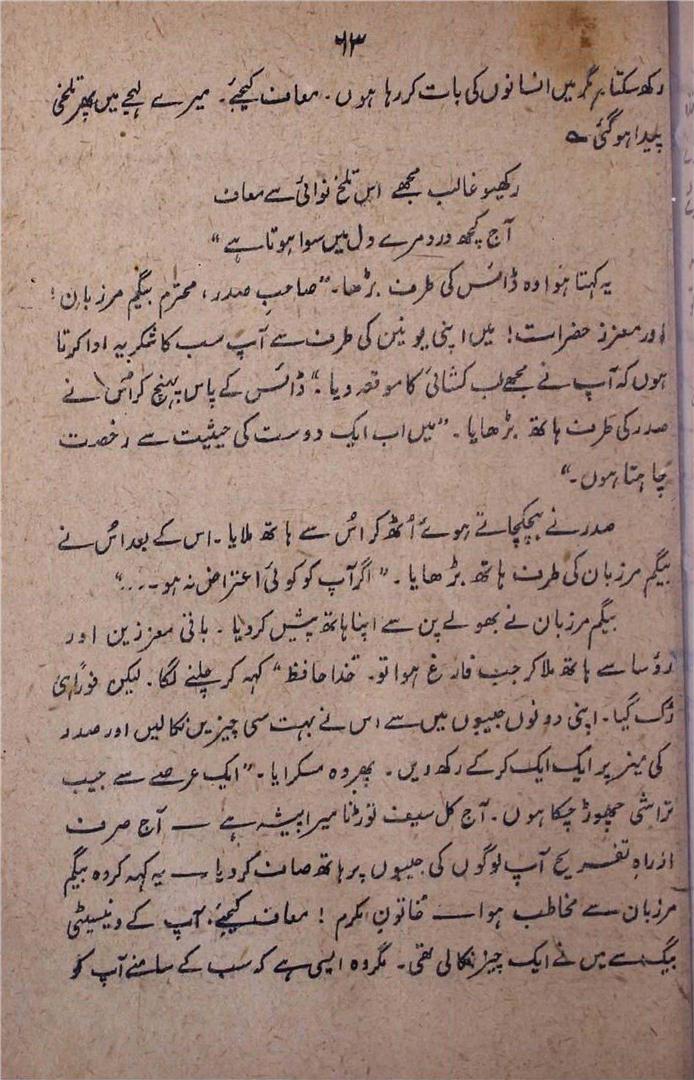 ۶۳
رکھ سکتا ہر گز میں انسانوں کی بات کر رہا ہوں۔ معاف کیجیے۔ میرے لہجے میں پھر تلخی
پیدا ہو گئی ؎
رکھیو غالب مجھے اس تلخ نوائی سے معاف
آج کچھ درد مرے دل میں سوا ہوتا ہے“
یہ کہتا ہوا وہ ڈائس کی طرف بڑھا۔ ”صاحبِ صدر، محترم بیگم مرزبان!
اور معزز حضرات! میں اپنی یونین کی طرف سے آپ سب کا شکریہ ادا کرتا
ہوں کہ آپ نے مجھے لب کشائی کا موقعہ دیا۔“ ڈائس کے پاس پہنچ کر اُس نے
صدر کی طرف ہاتھ بڑھایا۔ ”میں اب ایک دوست کی حیثیت سے رخصت
چاہتا ہوں۔“
صدر نے ہچکچاتے ہوئے اُٹھ کر اُس سے ہاتھ ملایا۔ اس کے بعد اس نے
بیگم مرزبان کی طرف ہاتھ بڑھایا۔ ”اگر آپ کو کوئی اعتراض نہ ہو۔۔۔“
بیگم مرزبان نے بھولے پن سے اپنا ہاتھ پیش کر دیا۔ باقی معززین اور
رؤسا سے ہاتھ ملا کر جب فارغ ہوا تو۔ خدا حافظ“ کہہ کر چلنے لگا۔ لیکن فوراً ہی
رُک گیا۔ اپنی دونوں جیبوں میں سے اس نے بہت سی چیزیں نکالیں اور صدر
کی میز پر ایک ایک کر کے رکھ دیں۔ پھر وہ مسکرایا۔ ”ایک عرصے سے جیب
تراشی چھوڑ چکا ہوں۔ آج کل سیف توڑنا میرا پیشہ ہے — آج صرف
ازراہِ تفریح آپ لوگوں کی جیبوں پر ہاتھ صاف کر دیا — یہ کہہ کر وہ بیگم
مرزبان سے مخاطب ہوا — خاتونِ مکرم! معاف کیجئے، آپ کے ونیسیٹی
بیگ سے میں نے ایک چیز نکالی تھی۔ مگر وہ ایسی ہے کہ سب کے سامنے آپ کو